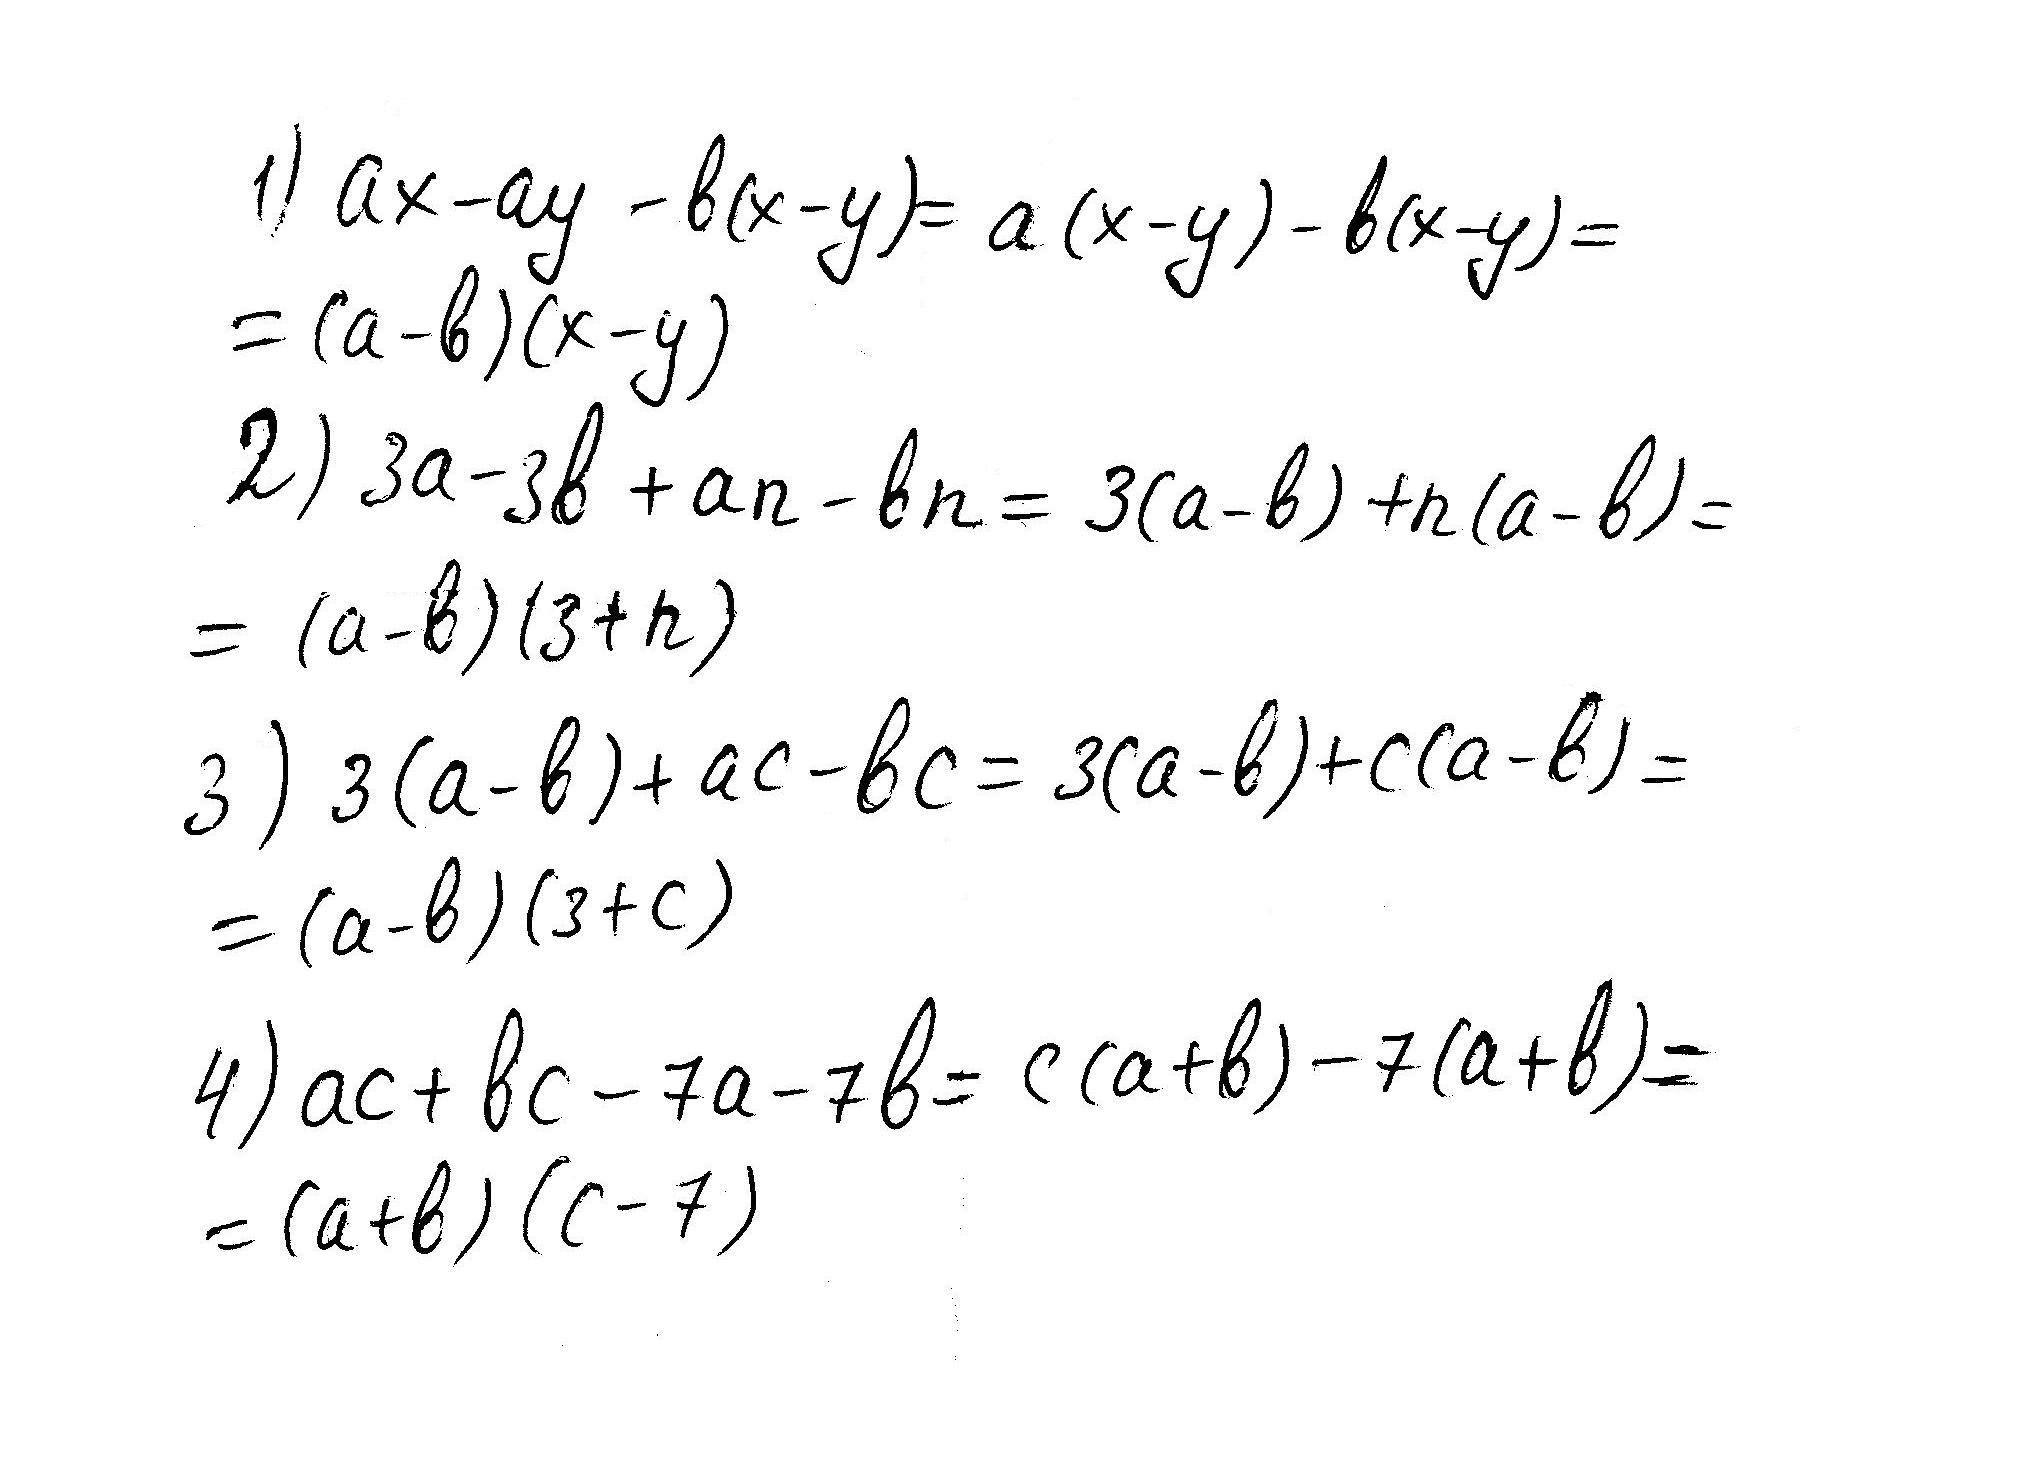 1) ax-ay-b(x-y)=a(x-y)-b(x-y)=
=(a-b)(x-y)
2) 3a-3b+an-bn=3(a-b)+n(a-b)=
=(a-b)(3+n)
3) 3(a-b)+ac-bc=3(a-b)+c(a-b)=
=(a-b)(3+c)
4) ac+bc-7a-7b=c(a+b)-7(a+b)=
=(a+b)(c-7)